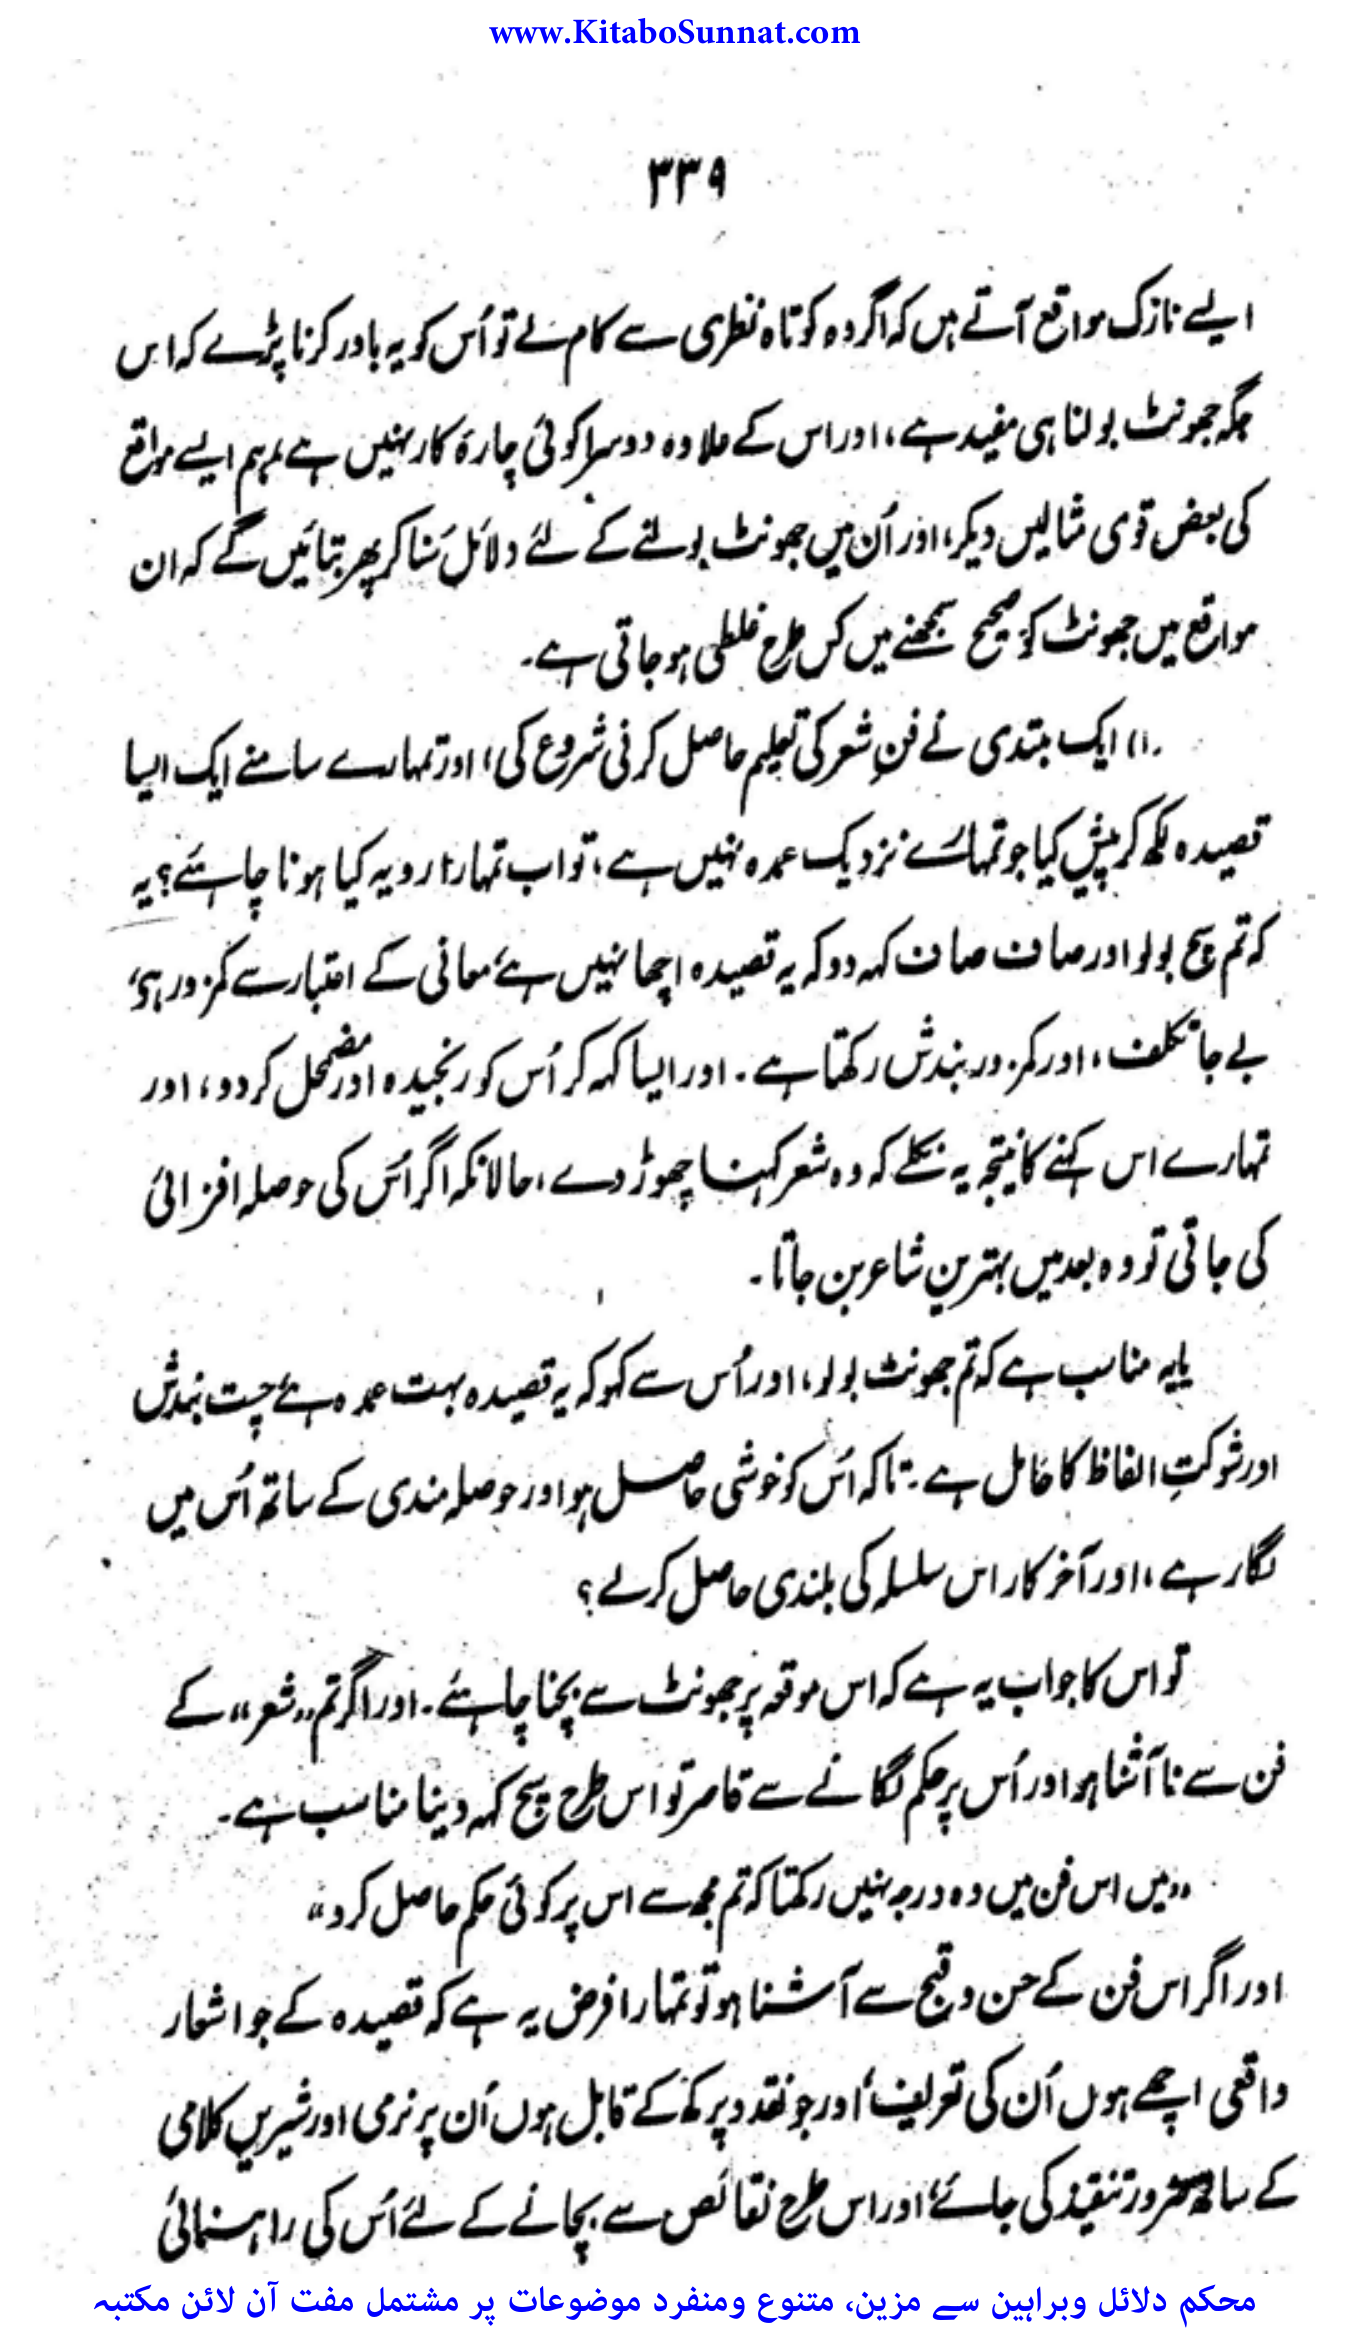 www.KitaboSunnat.com
۳۳۹
ایسے نازک مواقع آتے ہیں کہ اگر وہ کوتاہ نظری سے کام لے تو اُس کو یہ باور کرنا پڑے کہ اس
جگہ جھونٹ بولنا ہی مفید ہے، اور اس کے علاوہ دوسرا کوئی چارۂ کار نہیں ہے، ہم ایسے مواقع
کی بعض قوی مثالیں دیکر، اور اُن میں جھونٹ بولنے کے لئے دلائل سُنا کر پھر بتائیں گے کہ ان
مواقع میں جھونٹ کو صحیح سمجھنے میں کس طرح غلطی ہو جاتی ہے۔
(۱) ایک مبتدی نے فنِ شعر کی تعلیم حاصل کرنی شروع کی، اور تمہارے سامنے ایک ایسا
قصیدہ لکھ کر پیش کیا جو تمہارے نزدیک عمدہ نہیں ہے، تو اب تمہارا رویہ کیا ہونا چاہئے؟ یہ
کہ تم سچ بولو اور صاف صاف کہہ دو کہ یہ قصیدہ اچھا نہیں ہے، معانی کے اعتبار سے کمزور ہے،
بے جا تکلف، اور کمزور بندش رکھتا ہے۔ اور ایسا کہہ کر اُس کو رنجیدہ اور مضمحل کر دو، اور
تمہارے اس کہنے کا نتیجہ یہ نکلے کہ وہ شعر کہنا چھوڑ دے، حالانکہ اگر اُس کی حوصلہ افزائی
کی جاتی تو وہ بعد میں بہترین شاعر بن جاتا۔
یا یہ مناسب ہے کہ تم جھونٹ بولو، اور اُس سے کہو کہ یہ قصیدہ بہت عمدہ ہے، چست بندش
اور شوکتِ الفاظ کا حامل ہے۔ تاکہ اُس کو خوشی حاصل ہو اور حوصلہ مندی کے ساتھ اُس میں
لگا رہے، اور آخر کار اس سلسلہ کی بلندی حاصل کر لے؟
تو اس کا جواب یہ ہے کہ اس موقعہ پر جھونٹ سے بچنا چاہئے۔ اور اگر تم "شعر" کے
فن سے نا آشنا ہو اور اُس پر حکم لگانے سے قاصر تو اس طرح سچ کہہ دینا مناسب ہے۔
"میں اس فن میں وہ درجہ نہیں رکھتا کہ تم مجھ سے اس پر کوئی حکم حاصل کرو"
اور اگر اس فن کے حسن و قبح سے آشنا ہو تو تمہارا فرض یہ ہے کہ قصیدہ کے جو اشعار
واقعی اچھے ہوں اُن کی تعریف، اور جو نقد و پرکھ کے قابل ہوں اُن پر نرمی اور شیریں کلامی
کے ساتھ ضرور تنقید کی جائے، اور اس طرح نقائص سے بچانے کے لئے اُس کی راہنمائی
محکم دلائل وبراہین سے مزین، متنوع ومنفرد موضوعات پر مشتمل مفت آن لائن مکتبہ